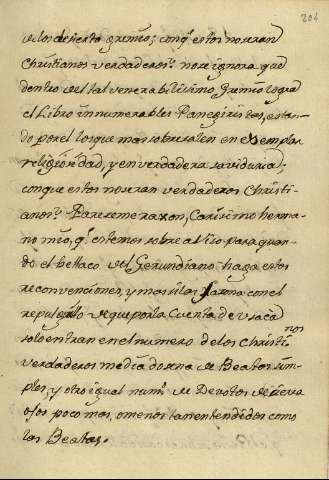 204
de los de cierto gremio; conq.e estos no seran
Christianos verdaderos? no se ignora que
dentro de tal venerabilissimo Gremio logra
el Libro innumerables Panegiristas, estan-
do por el los que mas sobresalen en exemplar
religiosidad, y en verdadera saviduria;
conque estos no seran verdaderos Christi-
anos? Parezeme razon, Carissimo herma-
no mio, q.e estemos sobre aviso para quan-
do el bellaco del Gerundiano haga estas
reconvenciones, y mas si las sazona con el
repulgo de que por la cuenta de usarced
solo entran en el numero de los Christianos
verdaderos media dozena de Beatos sim-
ples, y otro igual num.o de Devotos de
ojos poco mas, o menos tan entendidos como
las Beatas.